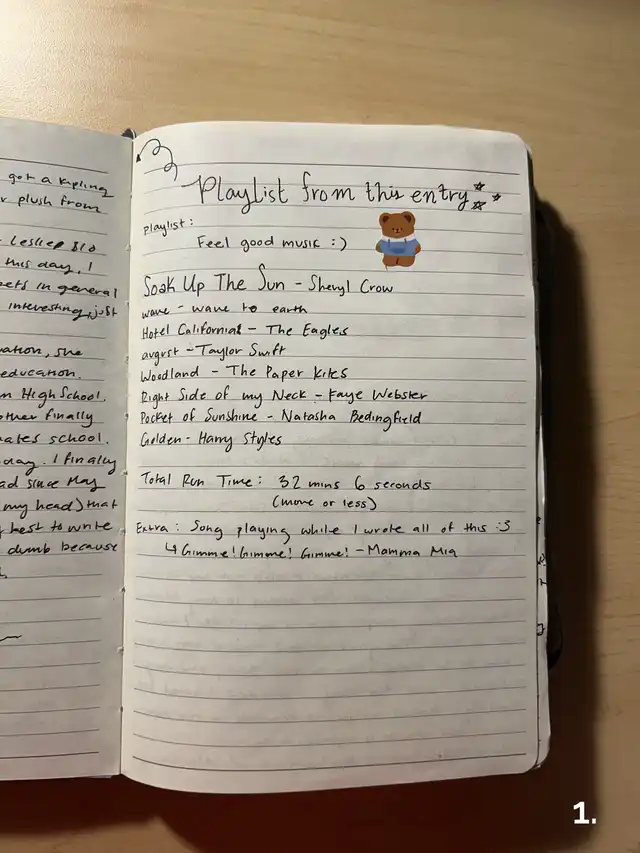 got a Kipling
r plush from
Leslie $10
this day, I
ets in general
interesting, just
vation, she
education.
n High School.
other finally
ates school.
day. I finally
ad since May
my head) that
best to write
dumb because
Playlist from this entry
playlist:
Feel good music :)
Soak Up The Sun - Sheryl Crow
wave - wave to earth
Hotel California - The Eagles
august - Taylor Swift
Woodland - The Paper Kites
Right Side of my Neck - Faye Webster
Pocket of Sunshine - Natasha Bedingfield
Golden - Harry Styles
Total Run Time: 32 mins 6 seconds
(more or less)
Extra: Song playing while I wrote all of this :3
↳ Gimme! Gimme! Gimme! - Mamma Mia
1.